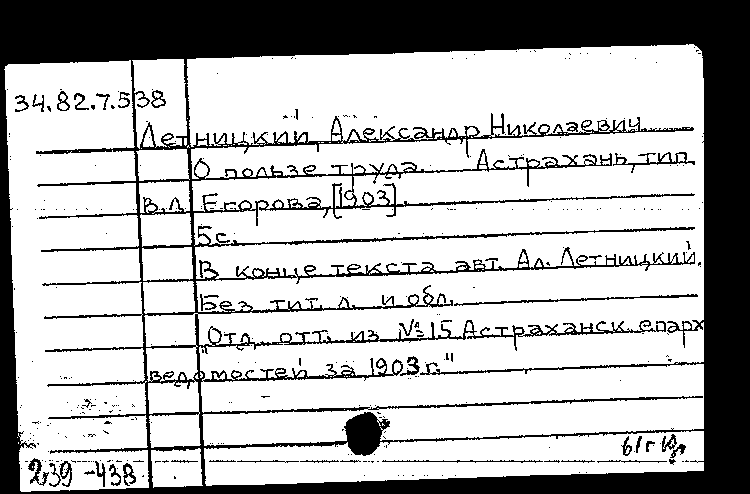 34.82.7.538
Летницкий, Александр Николаевич
О пользе труда. Астрахань, тип.
В.Л. Егорова, [1903].
5с.
В конце текста авт. Ал. Летницкий.
Без тит. л. и обл.
"Отд. отт. из №15 Астраханск. епарх
ведомостей за 1903 г."
61г
239-438